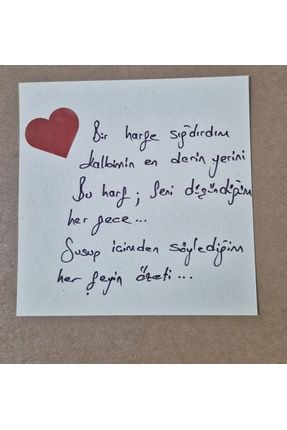 Bir harfe sığdırdım
kalbimin en derin yerini
Bu harf ; Seni düşündüğüm
her gece...
Susup içimden söylediğim
her şeyin özeti...